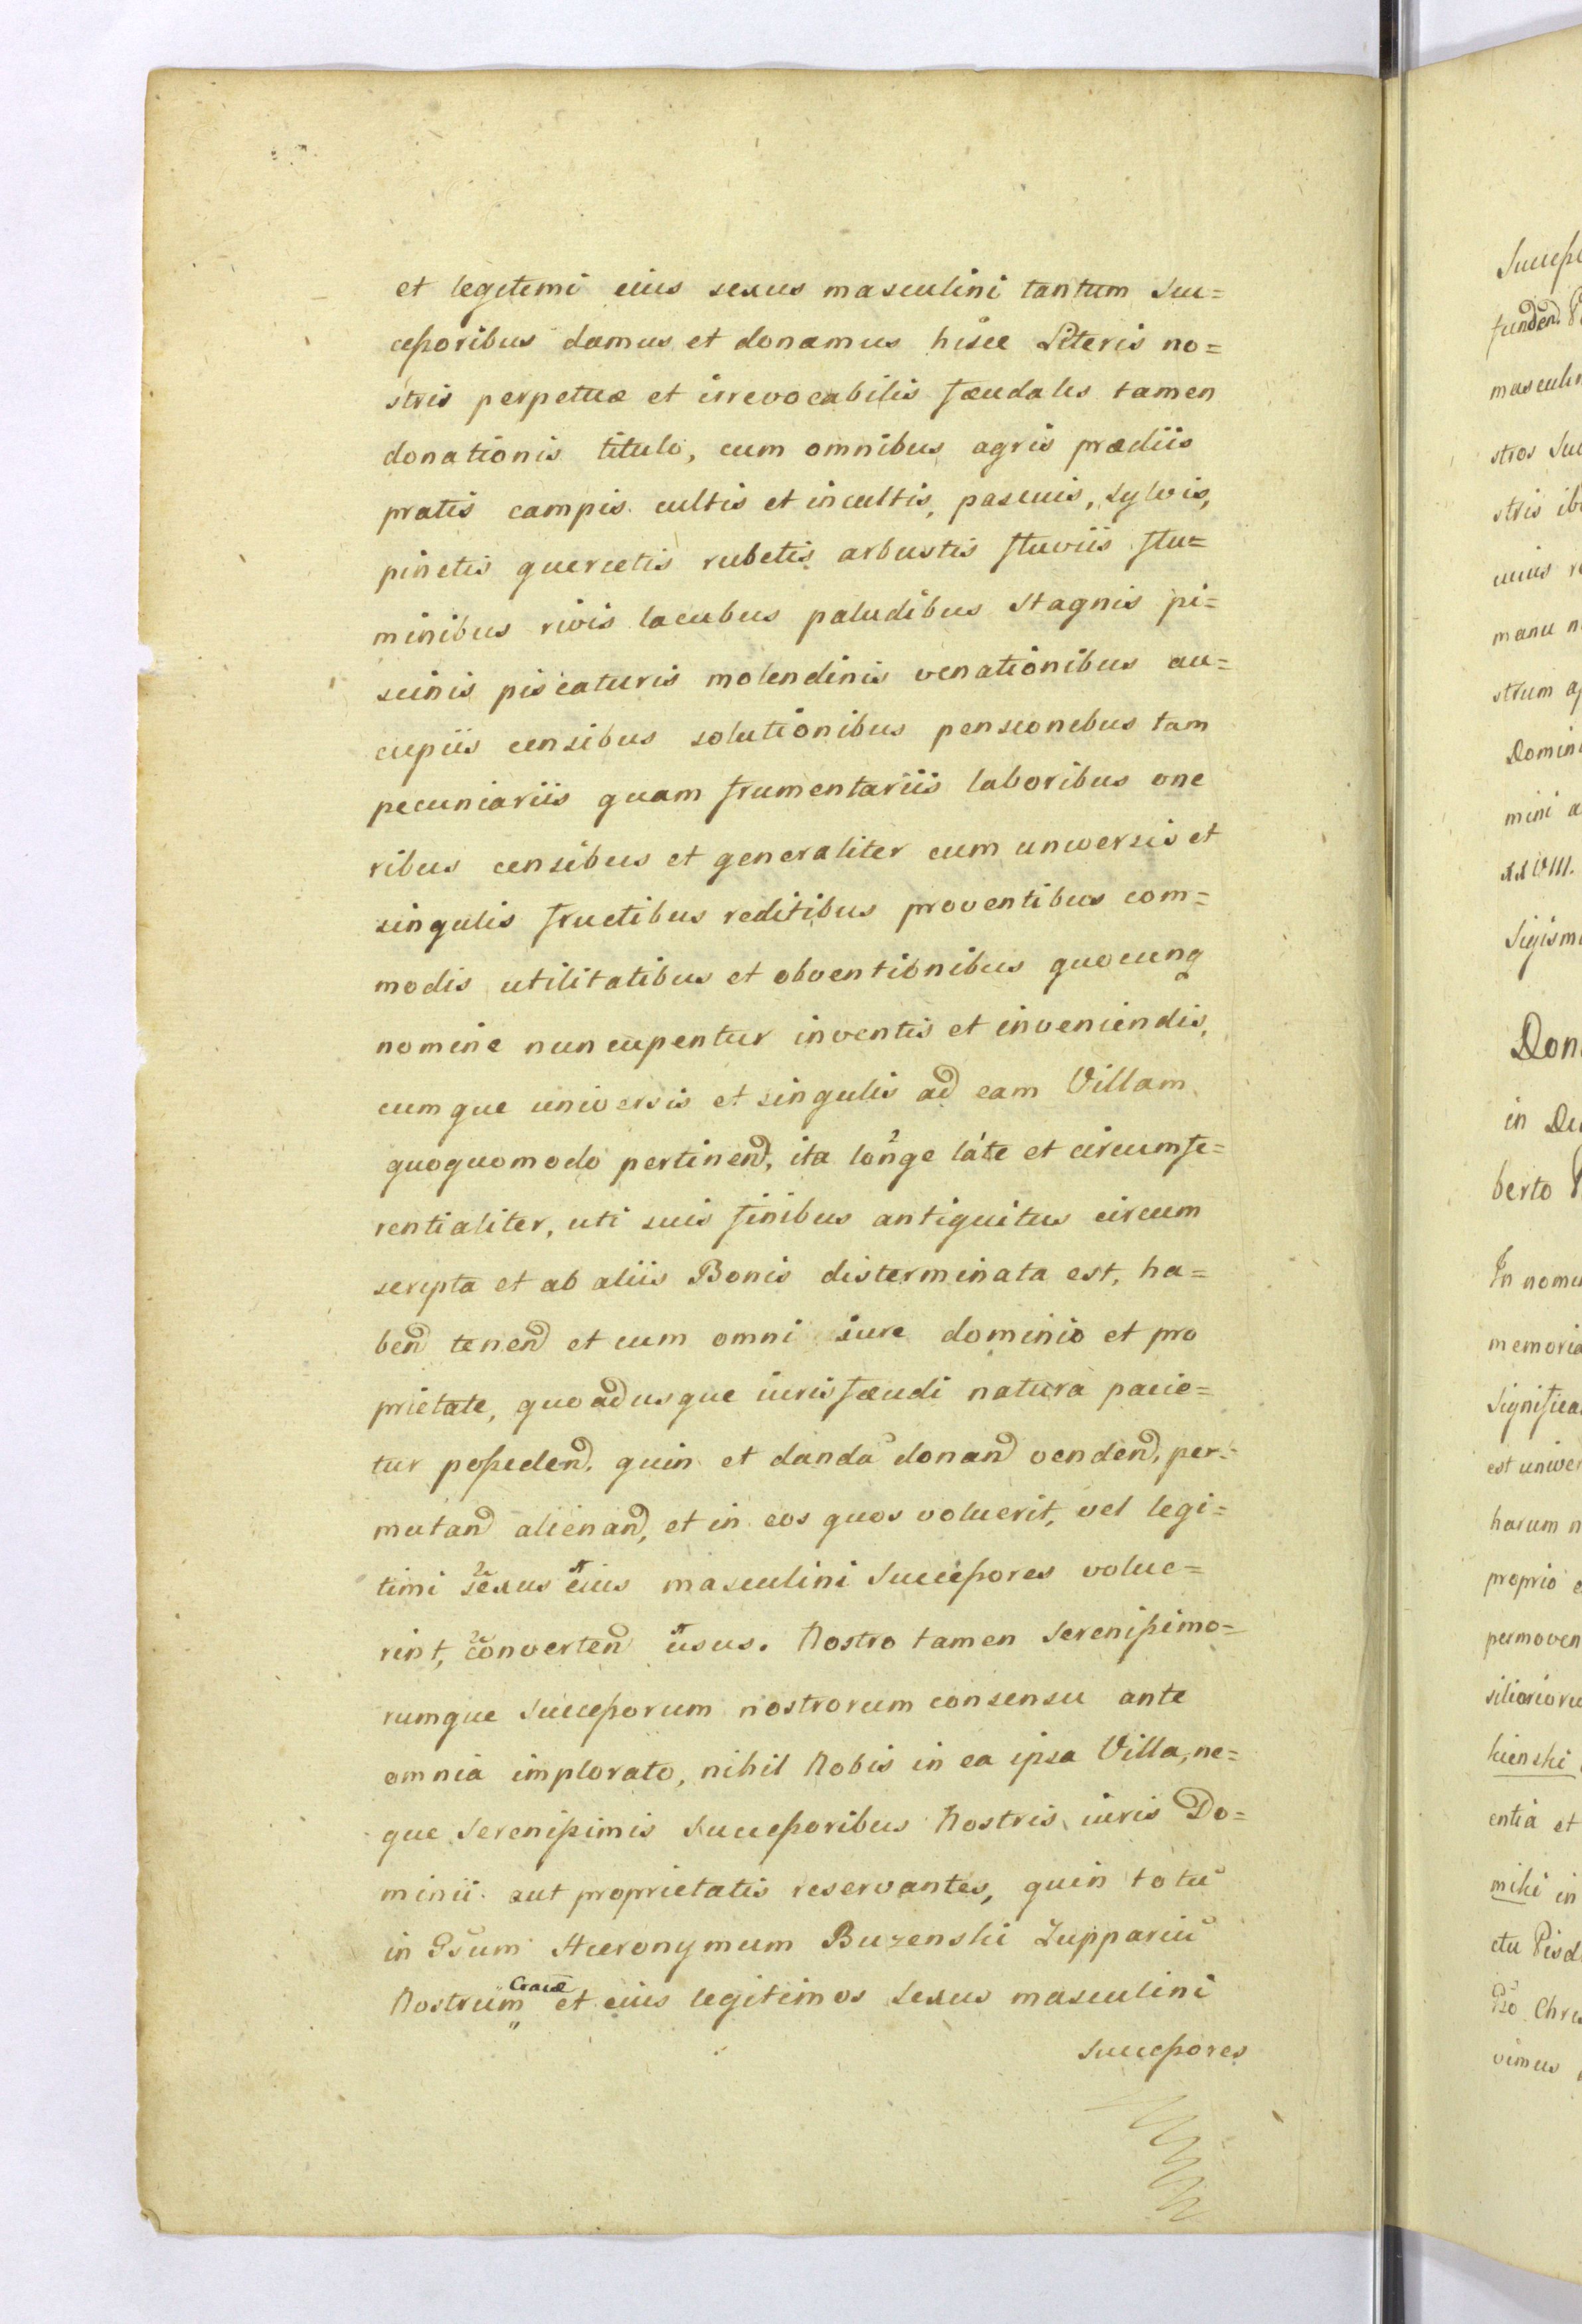 et legitimi eius sexus masculini tantum Suc=
cessoribus damus et donamus hisce Literis no=
stris perpetuæ et irrevocabilis fæudales tamen
donationis titulo, cum omnibus agris prædiis
pratis campis cultis et incultis, pascuis, sylvis,
pinetis quercetis rubetis arbustis fluviis flu=
minibus rivis lacubus paludibus stagnis pi=
scinis piscaturis molendinis venationibus au=
cupiis censibus solutionibus pensionibus tam
pecuniariis quam frumentariis laboribus one
ribus censibus et generaliter cum universis et
singulis fructibus reditibus proventibus com=
modis utilitatibus et obventionibus quocunq
nomine nuncupentur inventis et inveniendis,
cumque universis et singulis ad eam Villam
quoquomodo pertinend, ita longe late et circumfe=
rentialiter, uti suis finibus antiquitus circum
scripta et ab aliis Bonis disterminata est, ha=
bend tenend et cum omni iure dominio et pro
prietate, quoadusque iuris fæudi natura pacie=
tur possedend. quin et danda donand vendend, per=
mutand alienand, et in eos quos voluerit, vel legi=
timi sexus eius masculini Successores volue=
rint, converten usus. Nostro tamen Serenissimo=
rumque Successorum nostrorum consensu ante
omnia implorato, nihil Nobis in ea ipsa Villa, ne=
que Serenissimis Successoribus Nostris iuris Do=
minii aut proprietatis reservantes, quin totū
in Gsum Hieronymum Buzenski Zuppariū
Nostrum Cracæ et eius legitimos Sexus masculini
Successores
Don
in Du
berto
In nomi
memoria
Significa
est univer
harum n
proprio
permoven
entia et
vimus